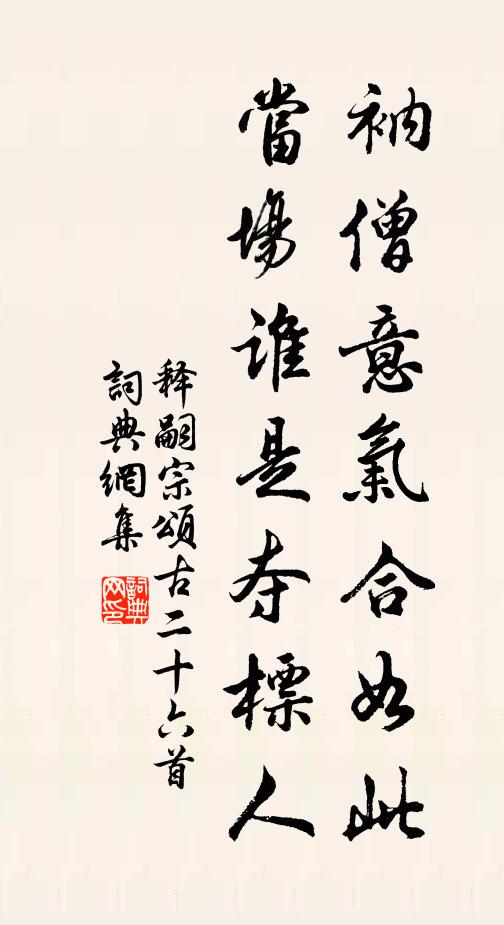 衲僧意氣合如此
當場誰是夺標人
释嗣宗頌古二十六首
詞典網集
詞典網印